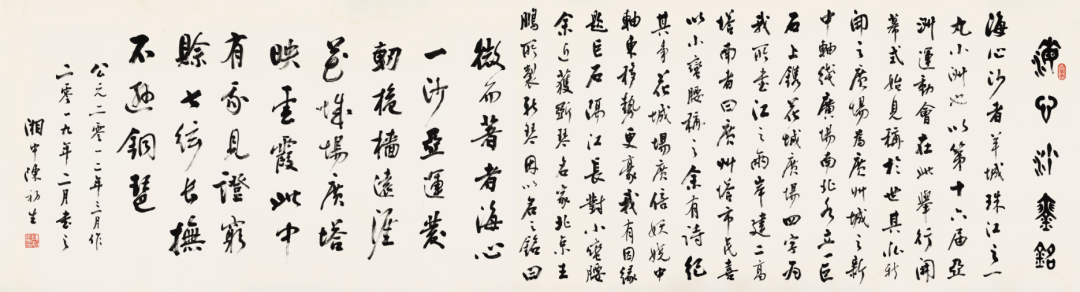 海心沙琴銘
海心沙者羊城珠江之一
丸小洲也以第十六届亞
洲運動會在此舉行開
幕式始見稱於世其北新
開之廣場為廣州城之新
中軸线廣場南北各立一巨
石上鐫花城廣場四字為
我所書江之兩岸建二高
塔南者曰廣州塔市民喜
以小蠻腰稱之余有詩紀
其事花城場廣倍妖嬈中
軸東移勢更豪我有因緣
題巨石隔江長對小蠻腰
余近獲斲琴名家北京王
鵬所製新琴因以名之銘曰
微而著者海心
一沙亞運發
軔桅檣遠涯
花城場廣塔
映雲霞此中
有我見證窮
賒七絃長撫
不遜銅琶
公元二零一二年三月作
二零一九年二月書之
湘中陳初生